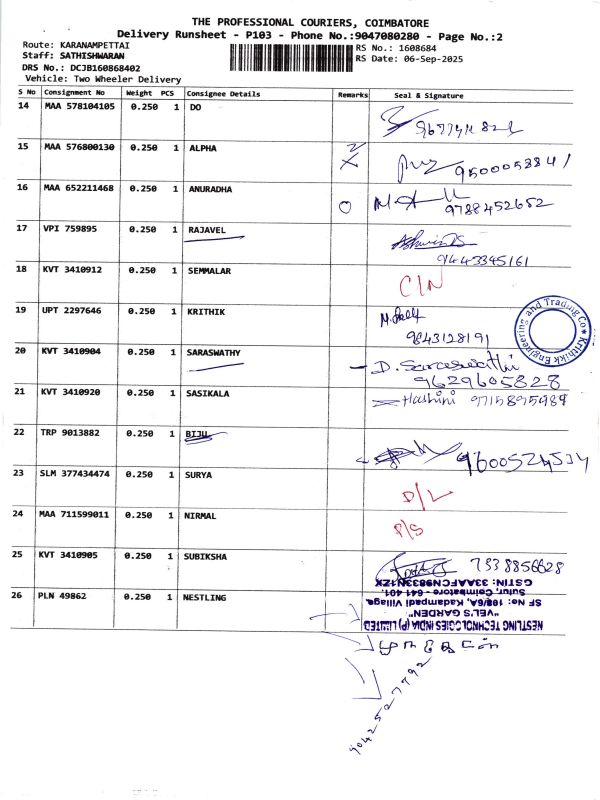 THE PROFESSIONAL COURIERS, COIMBATORE
Delivery Runsheet - P103 - Phone No.:9047080280 - Page No.:2
Route: KARANAMPETTAI
RS No.: 1608684
Staff: SATHISHWARAN
RS Date: 06-Sep-2025
DRS No.: DCJB160868402
Vehicle: Two Wheeler Delivery
S No Consignment No Weight PCS Consignee Details Remarks Seal & Signature
14 MAA 578104105 0.250 1 DO
15 MAA 576800130 0.250 1 ALPHA
9500053841
16 MAA 652211468 0.250 1 ANURADHA
9788452652
17 VPI 759895 0.250 1 RAJAVEL
9443345161
18 KVT 3410912 0.250 1 SEMMALAR
C/N
19 UPT 2297646 0.250 1 KRITHIK
9843128191
Krithikk Engineering and Trading Co
20 KVT 3410904 0.250 1 SARASWATHY
D. Saraswathi
9629605828
21 KVT 3410920 0.250 1 SASIKALA
Hashini 9715895989
22 TRP 9013882 0.250 1 BIJU
9600524534
23 SLM 377434474 0.250 1 SURYA
D/L
24 MAA 711599011 0.250 1 NIRMAL
P/S
25 KVT 3410905 0.250 1 SUBIKSHA
7338856628
26 PLN 49862 0.250 1 NESTLING
NESTLING TECHNOLOGIES INDIA (P) LIMITED
"VEL'S GARDEN"
SF No: 108/6A, Kadampadi Village,
Sulur, Coimbatore - 641 401.
GSTIN: 33AAFCN9833N1ZK
9042527792